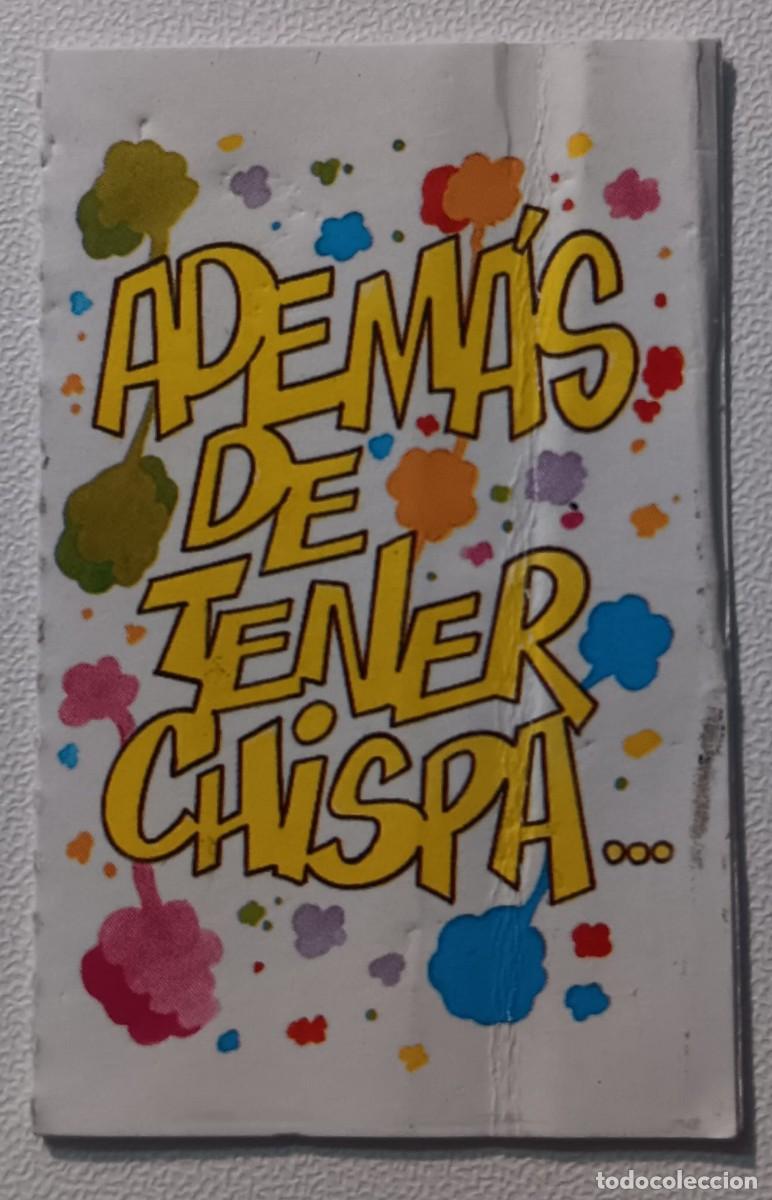 ADEMÁS
DE
TENER
CHiSPA...
todocoleccion